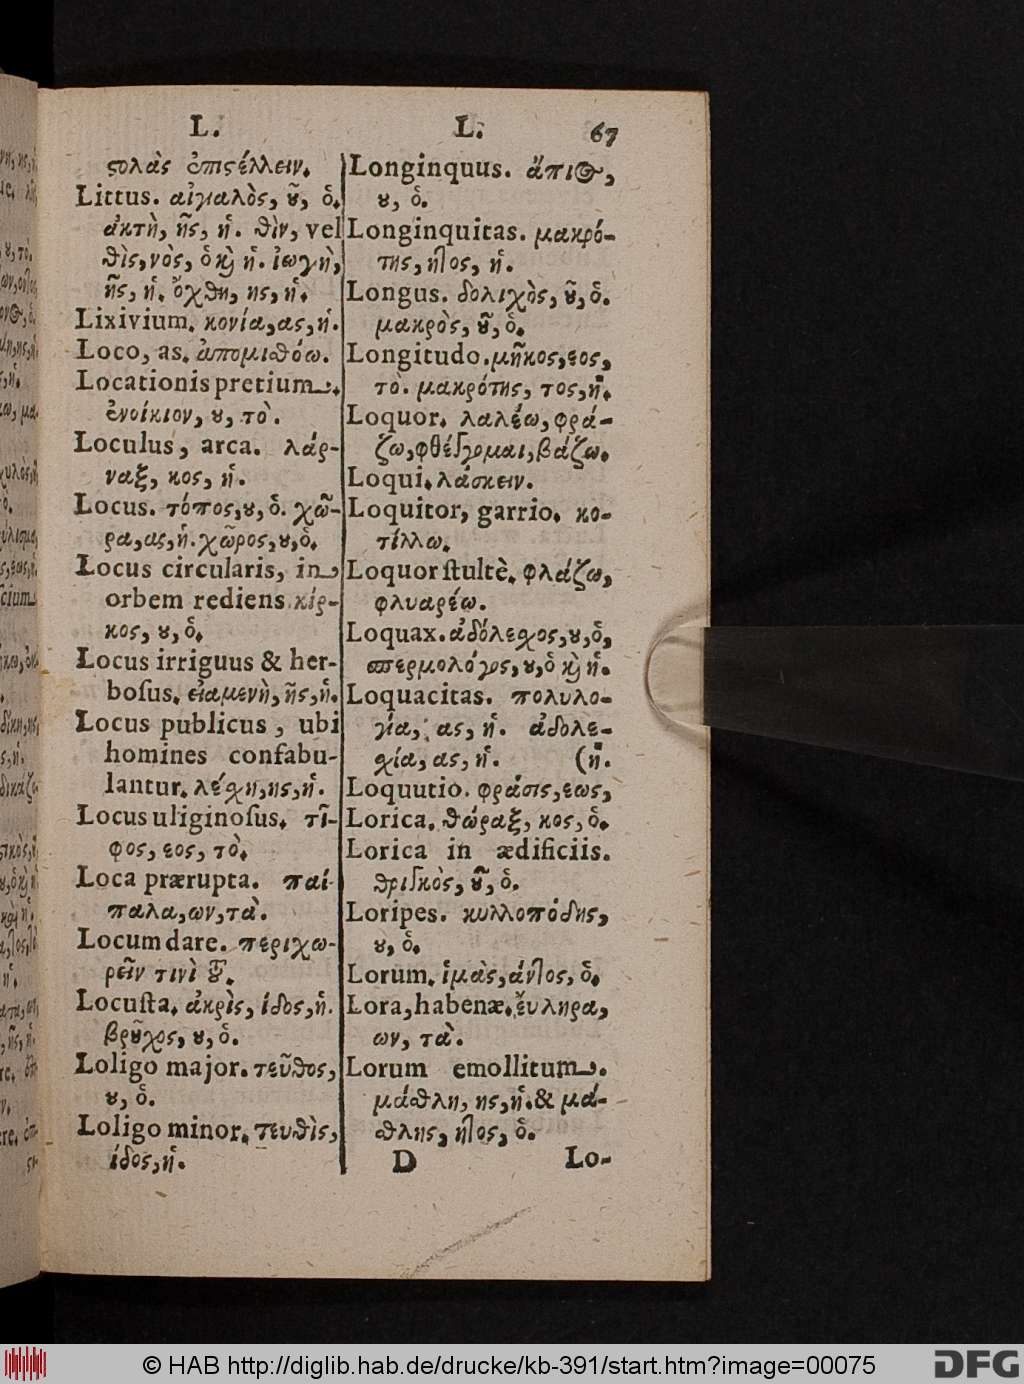 L.
L. 67
ϛολὰς ἐπιϛέλλειν.
Littus. αἰγιαλὸς, ȣ͂, ὁ.
ἀκτὴ, ῆς, ἡ. θὶν, vel
θὶς, νὸς, ὁ ϗ ἡ. ἰωγὴ,
ῆς, ἡ. ὄχθη, ης, ἡ.
Lixivium. κονία, ας, ἡ.
Loco, as. ἀπομιθόω.
Locationis pretium.
ἐνοίκιον, ȣ, τὸ.
Loculus, arca. λάρ-
ναξ, κος, ἡ.
Locus. τόπος, ȣ, ὁ. χῶ-
ρα, ας, ἡ. χῶρος, ȣ, ὁ.
Locus circularis, in
orbem rediens. κίρ-
κος, ȣ, ὁ.
Locus irriguus & her-
boſus. εἱαμενὴ, ῆς, ἡ.
Locus publicus, ubi
homines confabu-
lantur. λέχη, ης, ἡ.
Locus uliginoſus. τῖ-
φος, εος, τὸ.
Loca prærupta. παί-
παλα, ων, τὰ.
Locum dare. περιχω-
ρεῖν τινὶ
Locuſta. ἀκρὶς, ίδος, ἡ.
βρῦχος, ȣ, ὁ.
Loligo major. τεῦθος,
ȣ, ὁ.
Loligo minor. τευθὶς,
ίδος, ἡ.
Longinquus. ἄπιος,
ȣ, ὁ.
Longinquitas. μακρό-
της, ητος, ἡ.
Longus. δολιχὸς, ȣ͂, ὁ.
μακρὸς, ȣ͂, ὁ.
Longitudo. μῆκος, εος,
τὸ. μακρότης, τος, ἡ.
Loquor. λαλέω, φρά-
ζω, φθέγγομαι, βάζω.
Loqui. λάσκειν.
Loquitor, garrio. κο-
τίλλω.
Loquor ſtultè. φλάζω,
φλυαρέω.
Loquax. ἀδόλεχος, ȣ, ὁ,
σπερμολόγος, ȣ, ὁ ϗ ἡ.
Loquacitas. πολυλο-
γία, ας, ἡ. ἀδολε-
χία, ας, ἡ. (ἡ.
Loquutio. φράσις, εως,
Lorica. θώραξ, κος, ὁ.
Lorica in ædificiis.
θριγκὸς, ȣ͂, ὁ.
Loripes. κυλλοπόδης,
ȣ, ὁ.
Lorum. ἱμὰς, άντος, ὁ.
Lora, habenæ. εὔληρα,
ων, τὰ.
Lorum emollitum.
μάθλη, ης, ἡ. & μά-
θλης, ητος, ὁ.
D Lo-
© HAB http://diglib.hab.de/drucke/kb-391/start.htm?image=00075
DFG